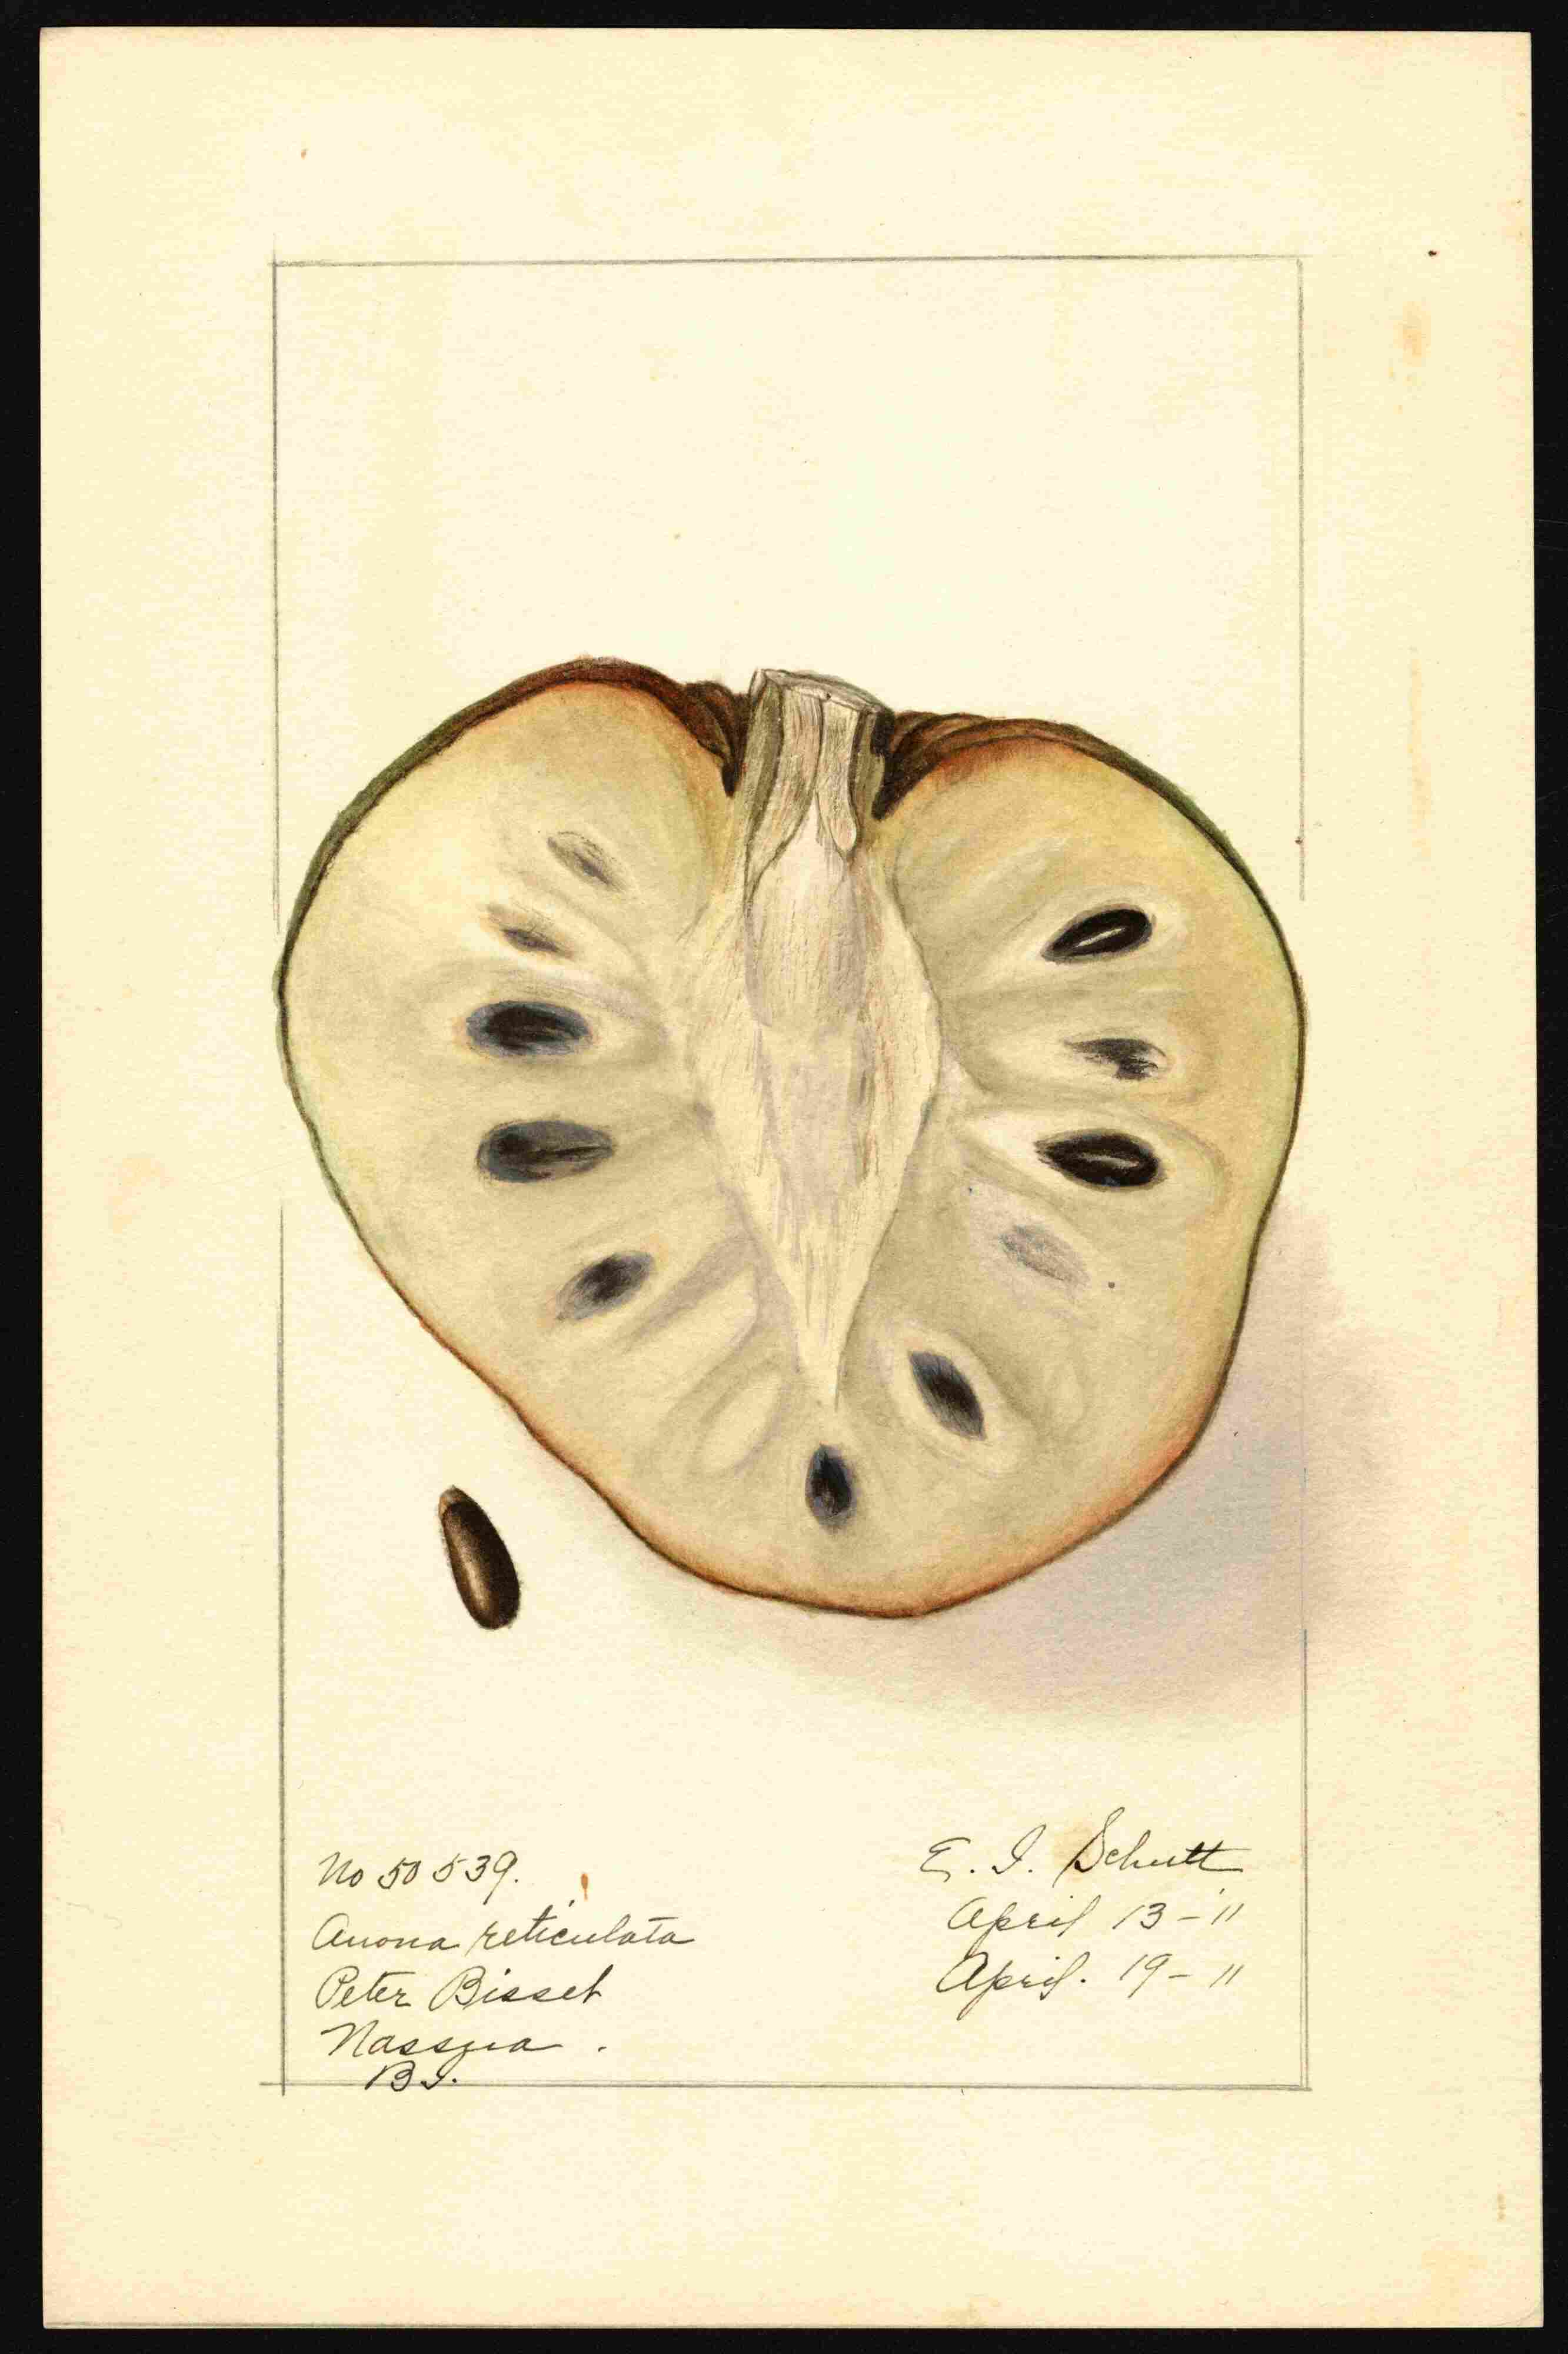 No 50539.
Anona reticulata
Peter Bisset
Nassua.
B I.
E. I. Schutt
April 13-'11
April. 19-11